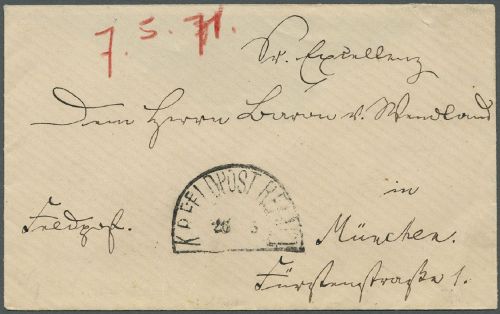 7. 5. 71.
Sr. Excellenz
Dem Herrn Baron v. Wendland
in
Feldpost.
München.
Fürstenstraße 1.
K.P. FELDPOST
26